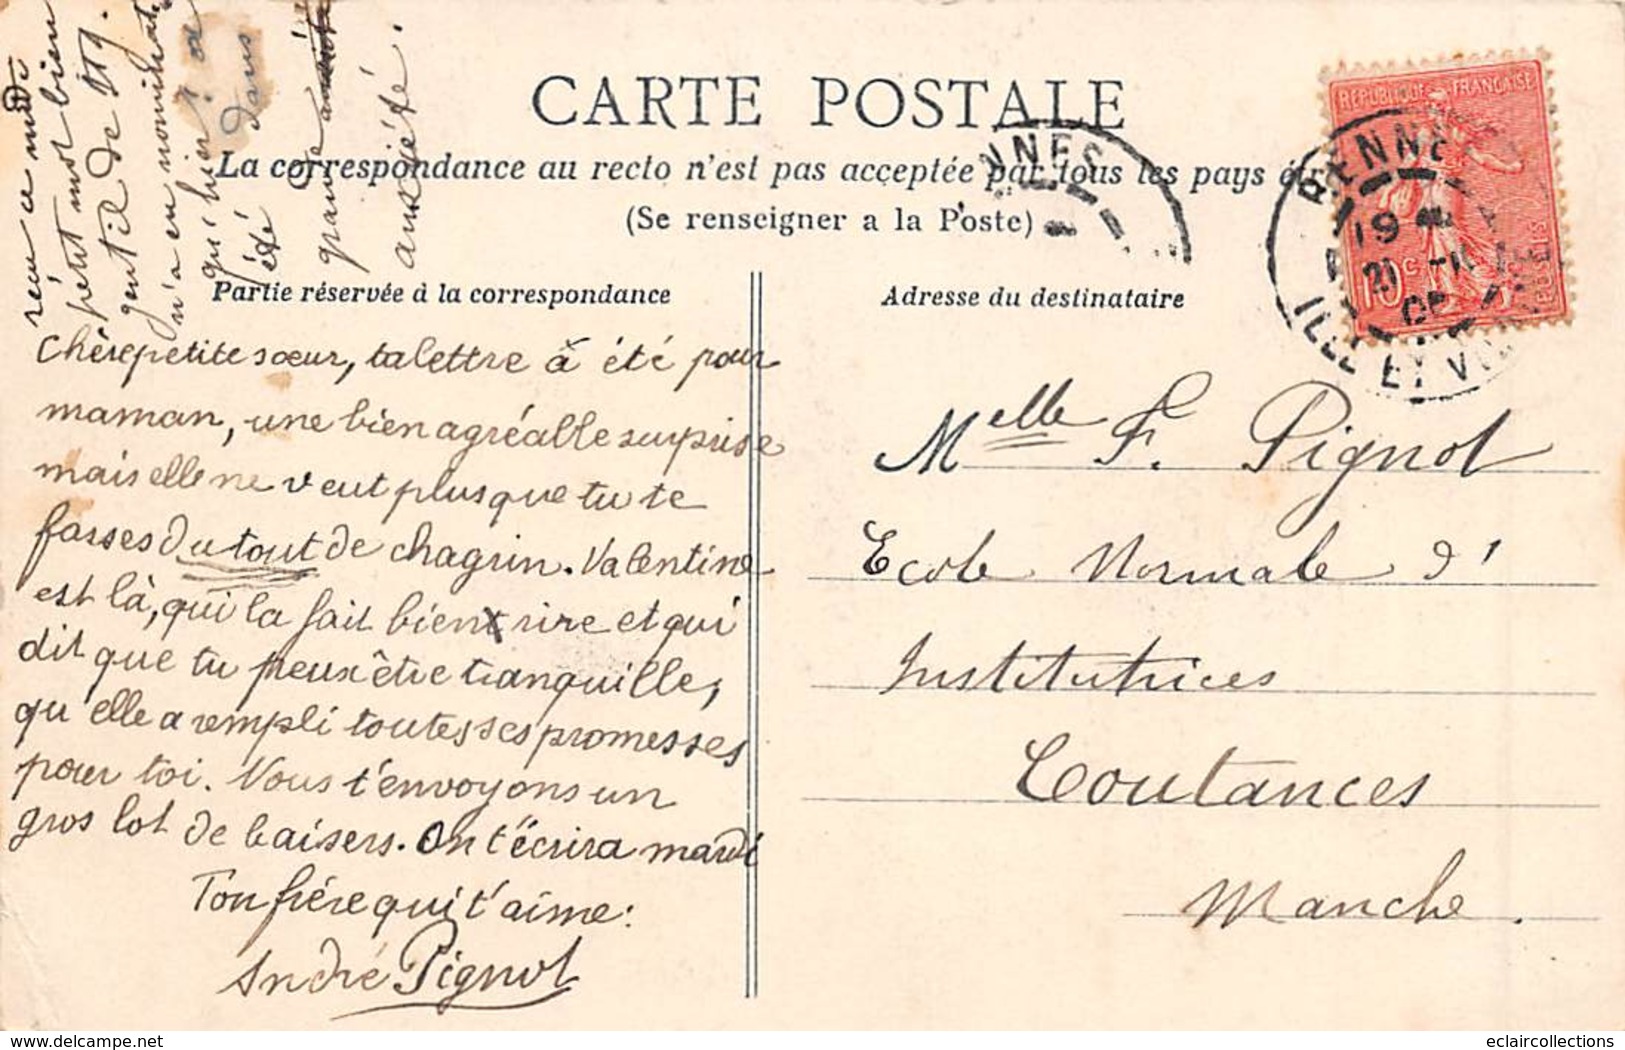 CARTE POSTALE
La correspondance au recto n'est pas acceptée par tous les pays
(Se renseigner a la Poste)
Partie réservée à la correspondance
Adresse du destinataire
REPUBLIQUE FRANÇAISE
POSTES
10 c
RENNES
19
21
ILLE ET VILAINE
NNES
reçu ce midi
petit mot bien
gentil de
n'a eu nominati
qu'hier
été dans
grande
anxiété.
Chère petite sœur, ta lettre à été pour
maman, une bien agréable surprise
mais elle ne veut plus que tu te
fasses du tout de chagrin. Valentine
est là, qui la fait bien rire et qui
dit que tu peux être tranquille,
qu'elle a rempli toutes ses promesses
pour toi. Nous t'envoyons un
gros lot de baisers. On t'écrira mardi
Ton frère qui t'aime:
André Pignol
Melle F. Pignol
Ecole Normale d'
Institutrices
Coutances
Manche.
www.delcampe.net
eclaircollections